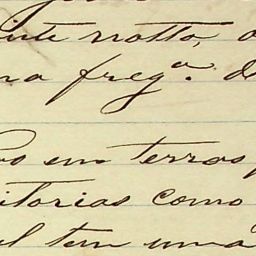 notto, a
na freg.ª d
o em terras
itorias como
l tem uma